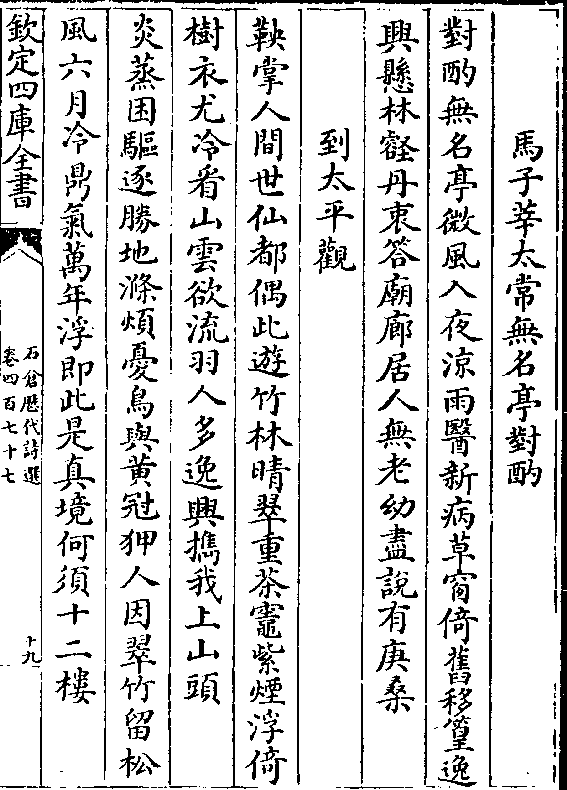 馬子莘太常無名亭對酌
對酌無名亭微風入夜涼雨醫新病草窗倚舊移篁逸
興懸林壑丹衷答廟廊居人無老幼盡說有庚桑
到太平觀
鞅掌人間世仙都偶此遊竹林晴翠重茶竈紫煙浮倚
樹衣尤冷看山雲欲流羽人多逸興攜我上山頭
炎蒸困驅逐勝地滌煩憂鳥與黄冠狎人因翠竹留松
風六月冷鼎氣萬年浮即此是真境何須十二樓
欽定四庫全書
石倉歴代詩選
卷四百七十七
十九